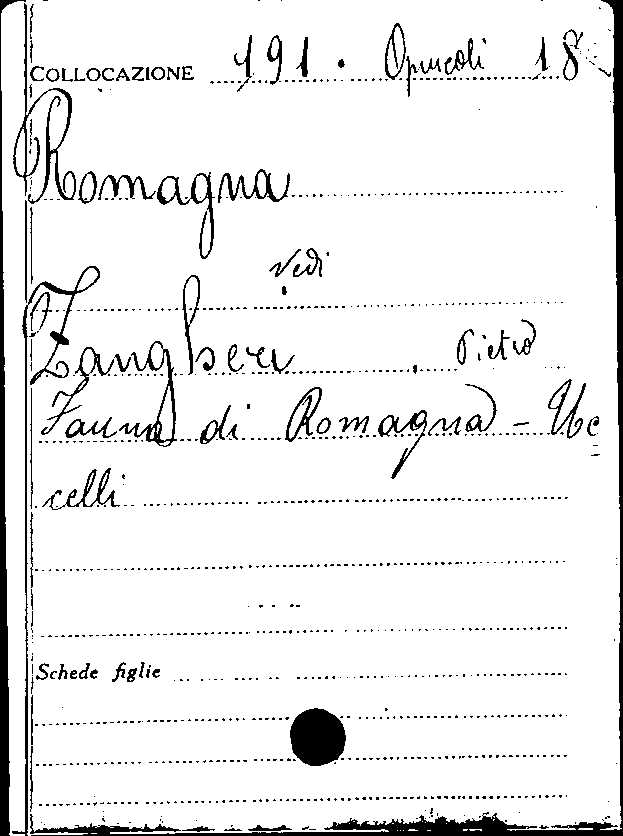 COLLOCAZIONE 191. Opuscoli 18
Romagna
Vedi
Zangheri, Pietro
Fauna di Romagna - Uc
celli
Schede figlie